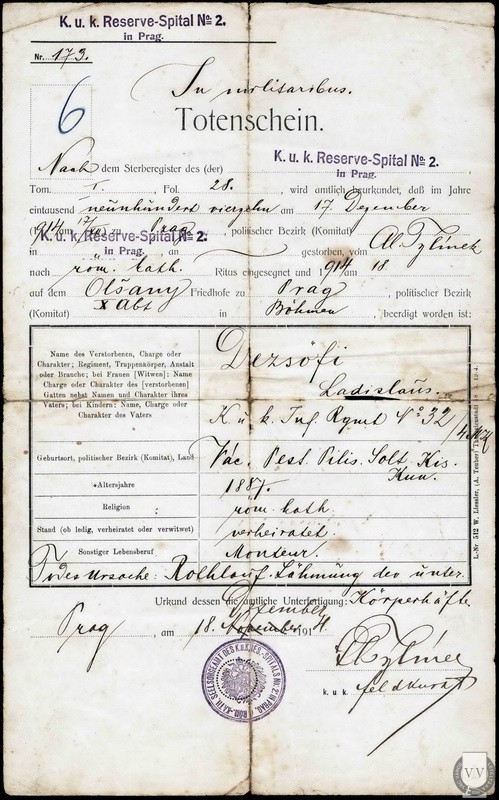 K. u. k. Reserve-Spital No 2.
in Prag.
Nr. 173.
6
In militaribus.
Totenschein.
K. u. k. Reserve-Spital No 2.
in Prag.
Nach dem Sterberegister des (der)
Tom. I. Fol. 28. , wird amtlich beurkundet, daß im Jahre
eintausend neunhundert vierzehn am 17. Dezember
(1914 17/XII) zu Prag , politischer Bezirk (Komitat)
K. u. k. Reserve-Spital No 2.
in Prag.
in , an gestorben, vom Al. Tylinek
nach röm. kath. Ritus eingesegnet und 1914 am 18
auf dem Olšany Friedhofe zu Prag , politischer Bezirk
(Komitat) X Abt in Böhmen , beerdigt worden ist:
Name des Verstorbenen, Charge oder
Charakter; Regiment, Truppenkörper, Anstalt
oder Branche; bei Frauen [Witwen]: Name
Charge oder Charakter des [verstorbenen]
Gatten nebst Namen und Charakter ihres
Vaters; bei Kindern: Name, Charge oder
Charakter des Vaters
Dezsöfi
Ladislaus.
K. u. k. Inf. Rgmt No 32
Geburtsort, politischer Bezirk (Komitat), Land
Vác. Pest. Pilis. Solt. Kis.
Kun.
Altersjahre
1887.
Religion
röm. kath.
Stand (ob ledig, verheiratet oder verwitwet)
verheiratet.
Sonstiger Lebensberuf
Monteur.
Todesursache: Rothlauf. Lähmung der unter.
Körperhäfte
Urkund dessen die amtliche Unterfertigung:
Dezember
Prag , am 18. November 1914.
Tylinek
k. u. k. Feldkurat